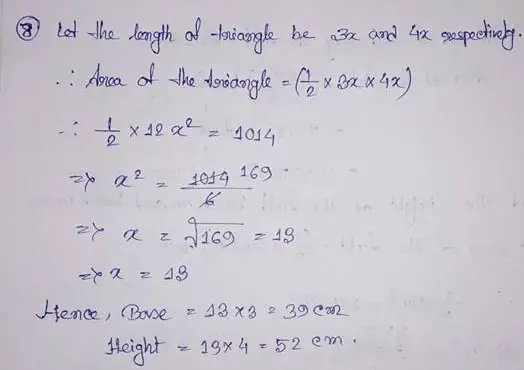 ⑧ Let the length of triangle be 3x and 4x respectively.
∴ Area of the triangle = (1/2 × 3x × 4x)
∴ 1/2 × 12 x² = 1014
=> x² = 1014/6 169
=> x = √169 = 13
=> x = 13
Hence, Base = 13×3 = 39 cm
Height = 13×4 = 52 cm.